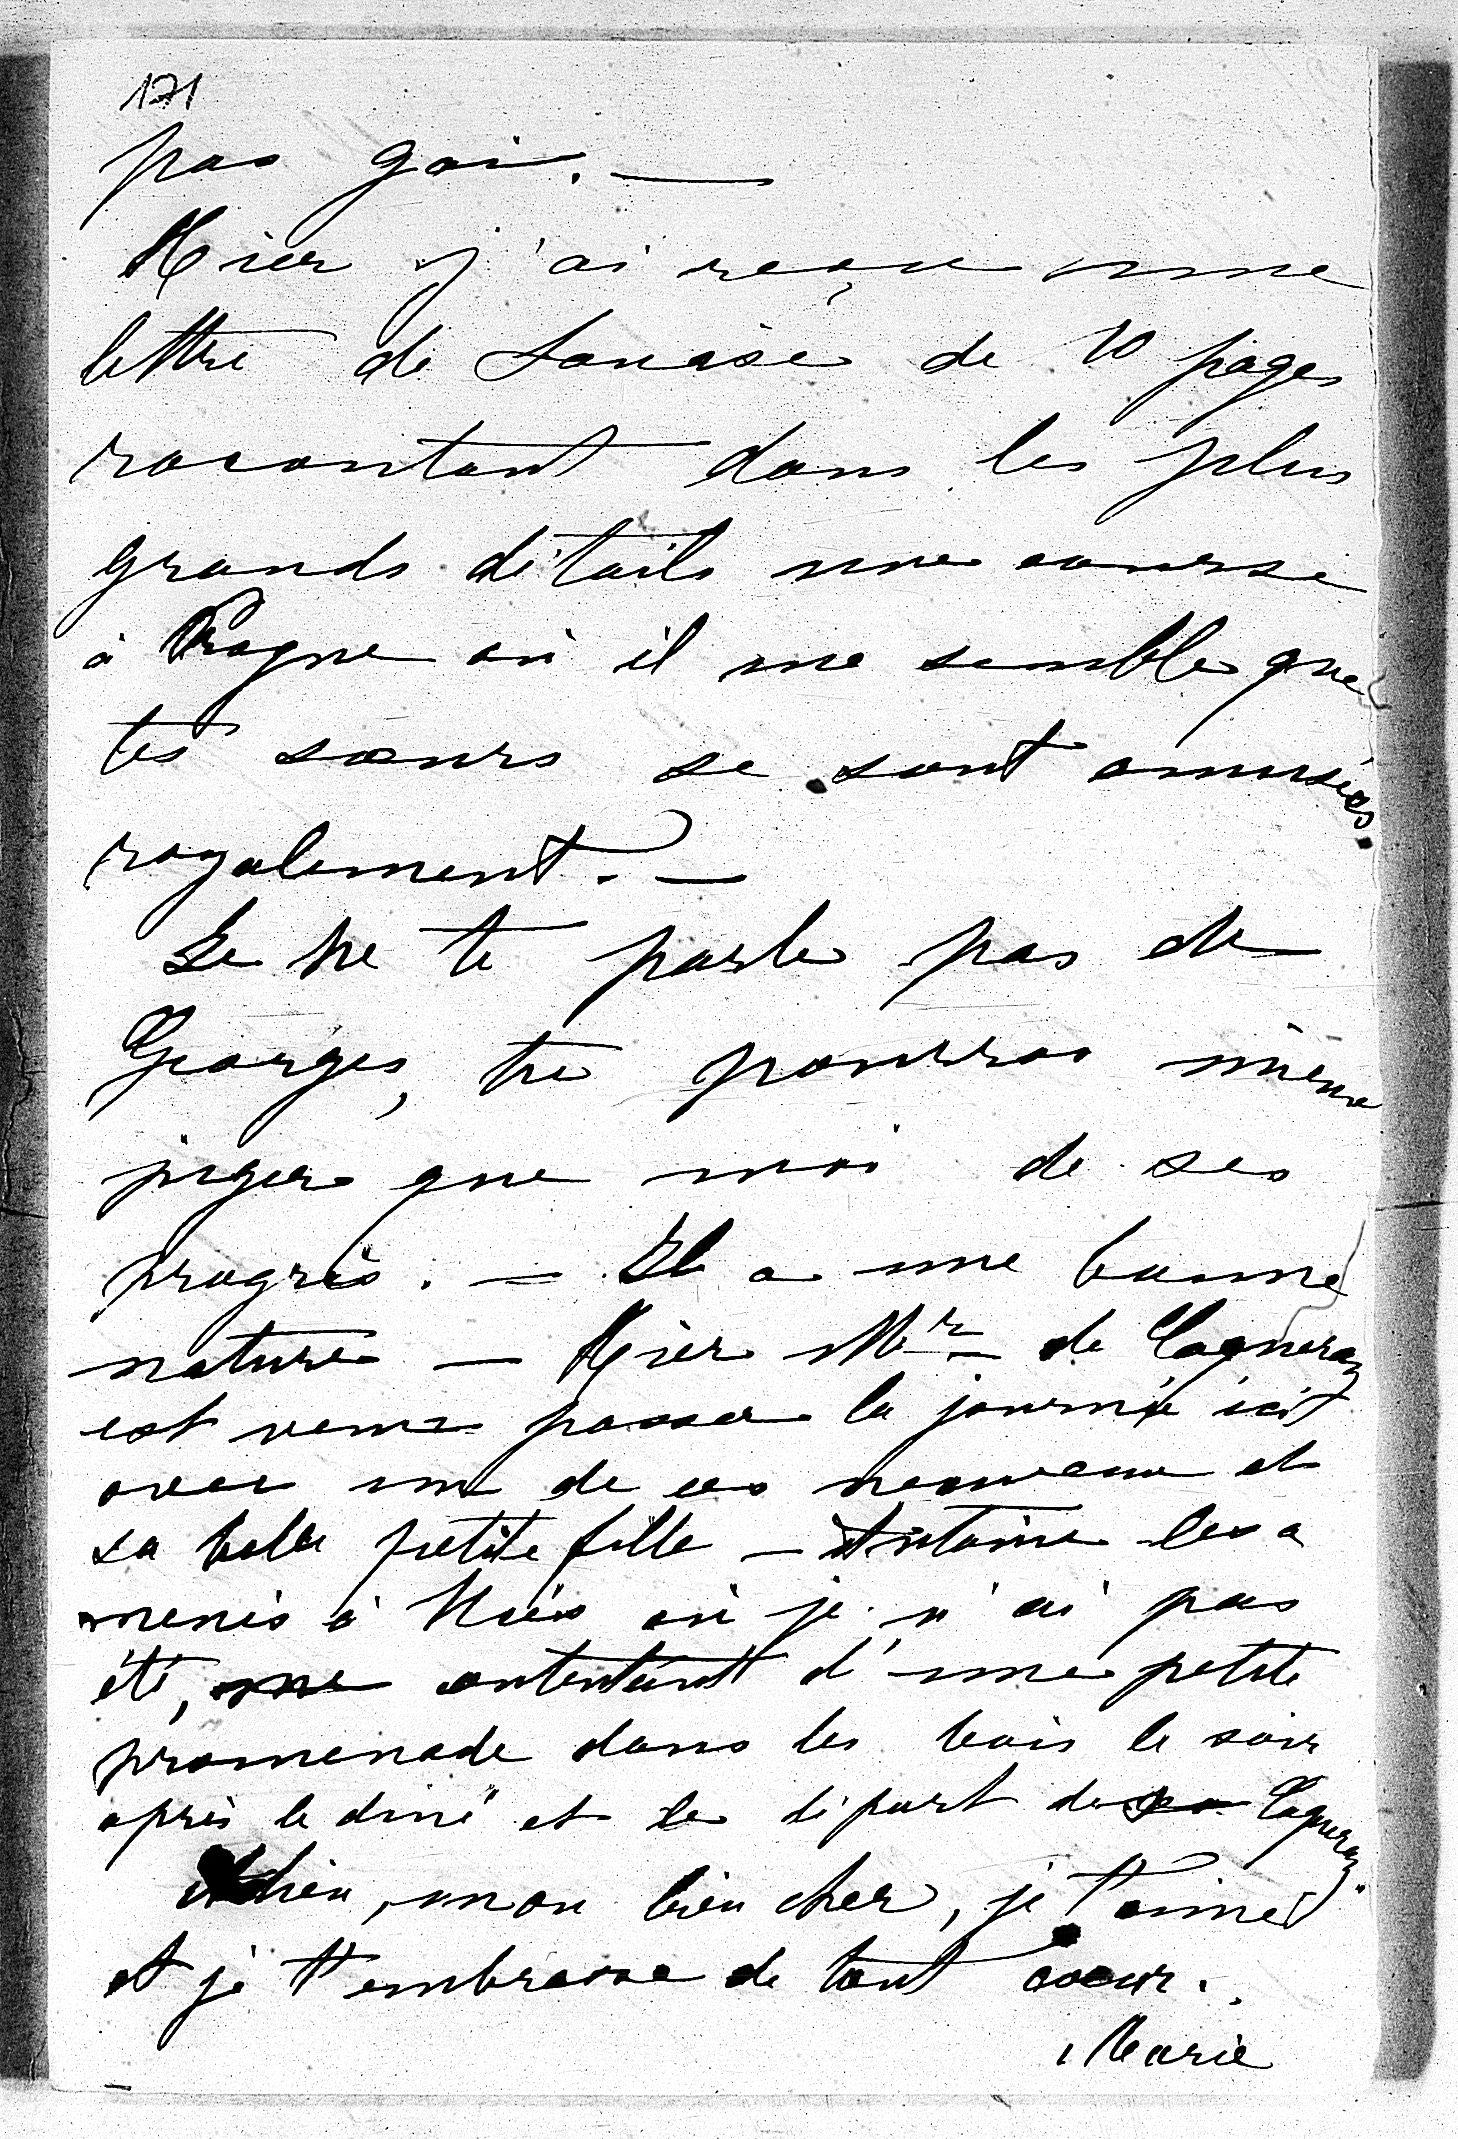 171
pas gai. —
Hier j'ai reçu une
lettre de Louise de 10 pages
racontant dans les plus
grands détails une course
à où il me semble que
tes sœurs se sont amusées
royalement. —
Je ne te parle pas de
Georges, tu pourras mieux
juger que moi de ses
progrès. — Il a une bonne
nature — Hier Mr de
est venu passer la journée ici
avec un de ces neveux et
sa belle petite fille — Antoine les a
menés à où je n'ai pas
été, me contentant d'une petite
promenade dans les bois le soir
après le diné et le départ de
Adieu, mon bien cher, je t'aime
et je t'embrasse de tout coeur.
Marie